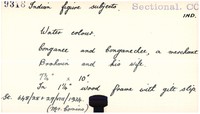 9316 Indian figure subjects. Sectional. CO
IND.
Water colour.
Bongance and Bongraneelee, a merchant
Brahmin and his wife.
7¼" x 10".
In 1⅛" wood frame with gilt slip
(Mr. Comins)